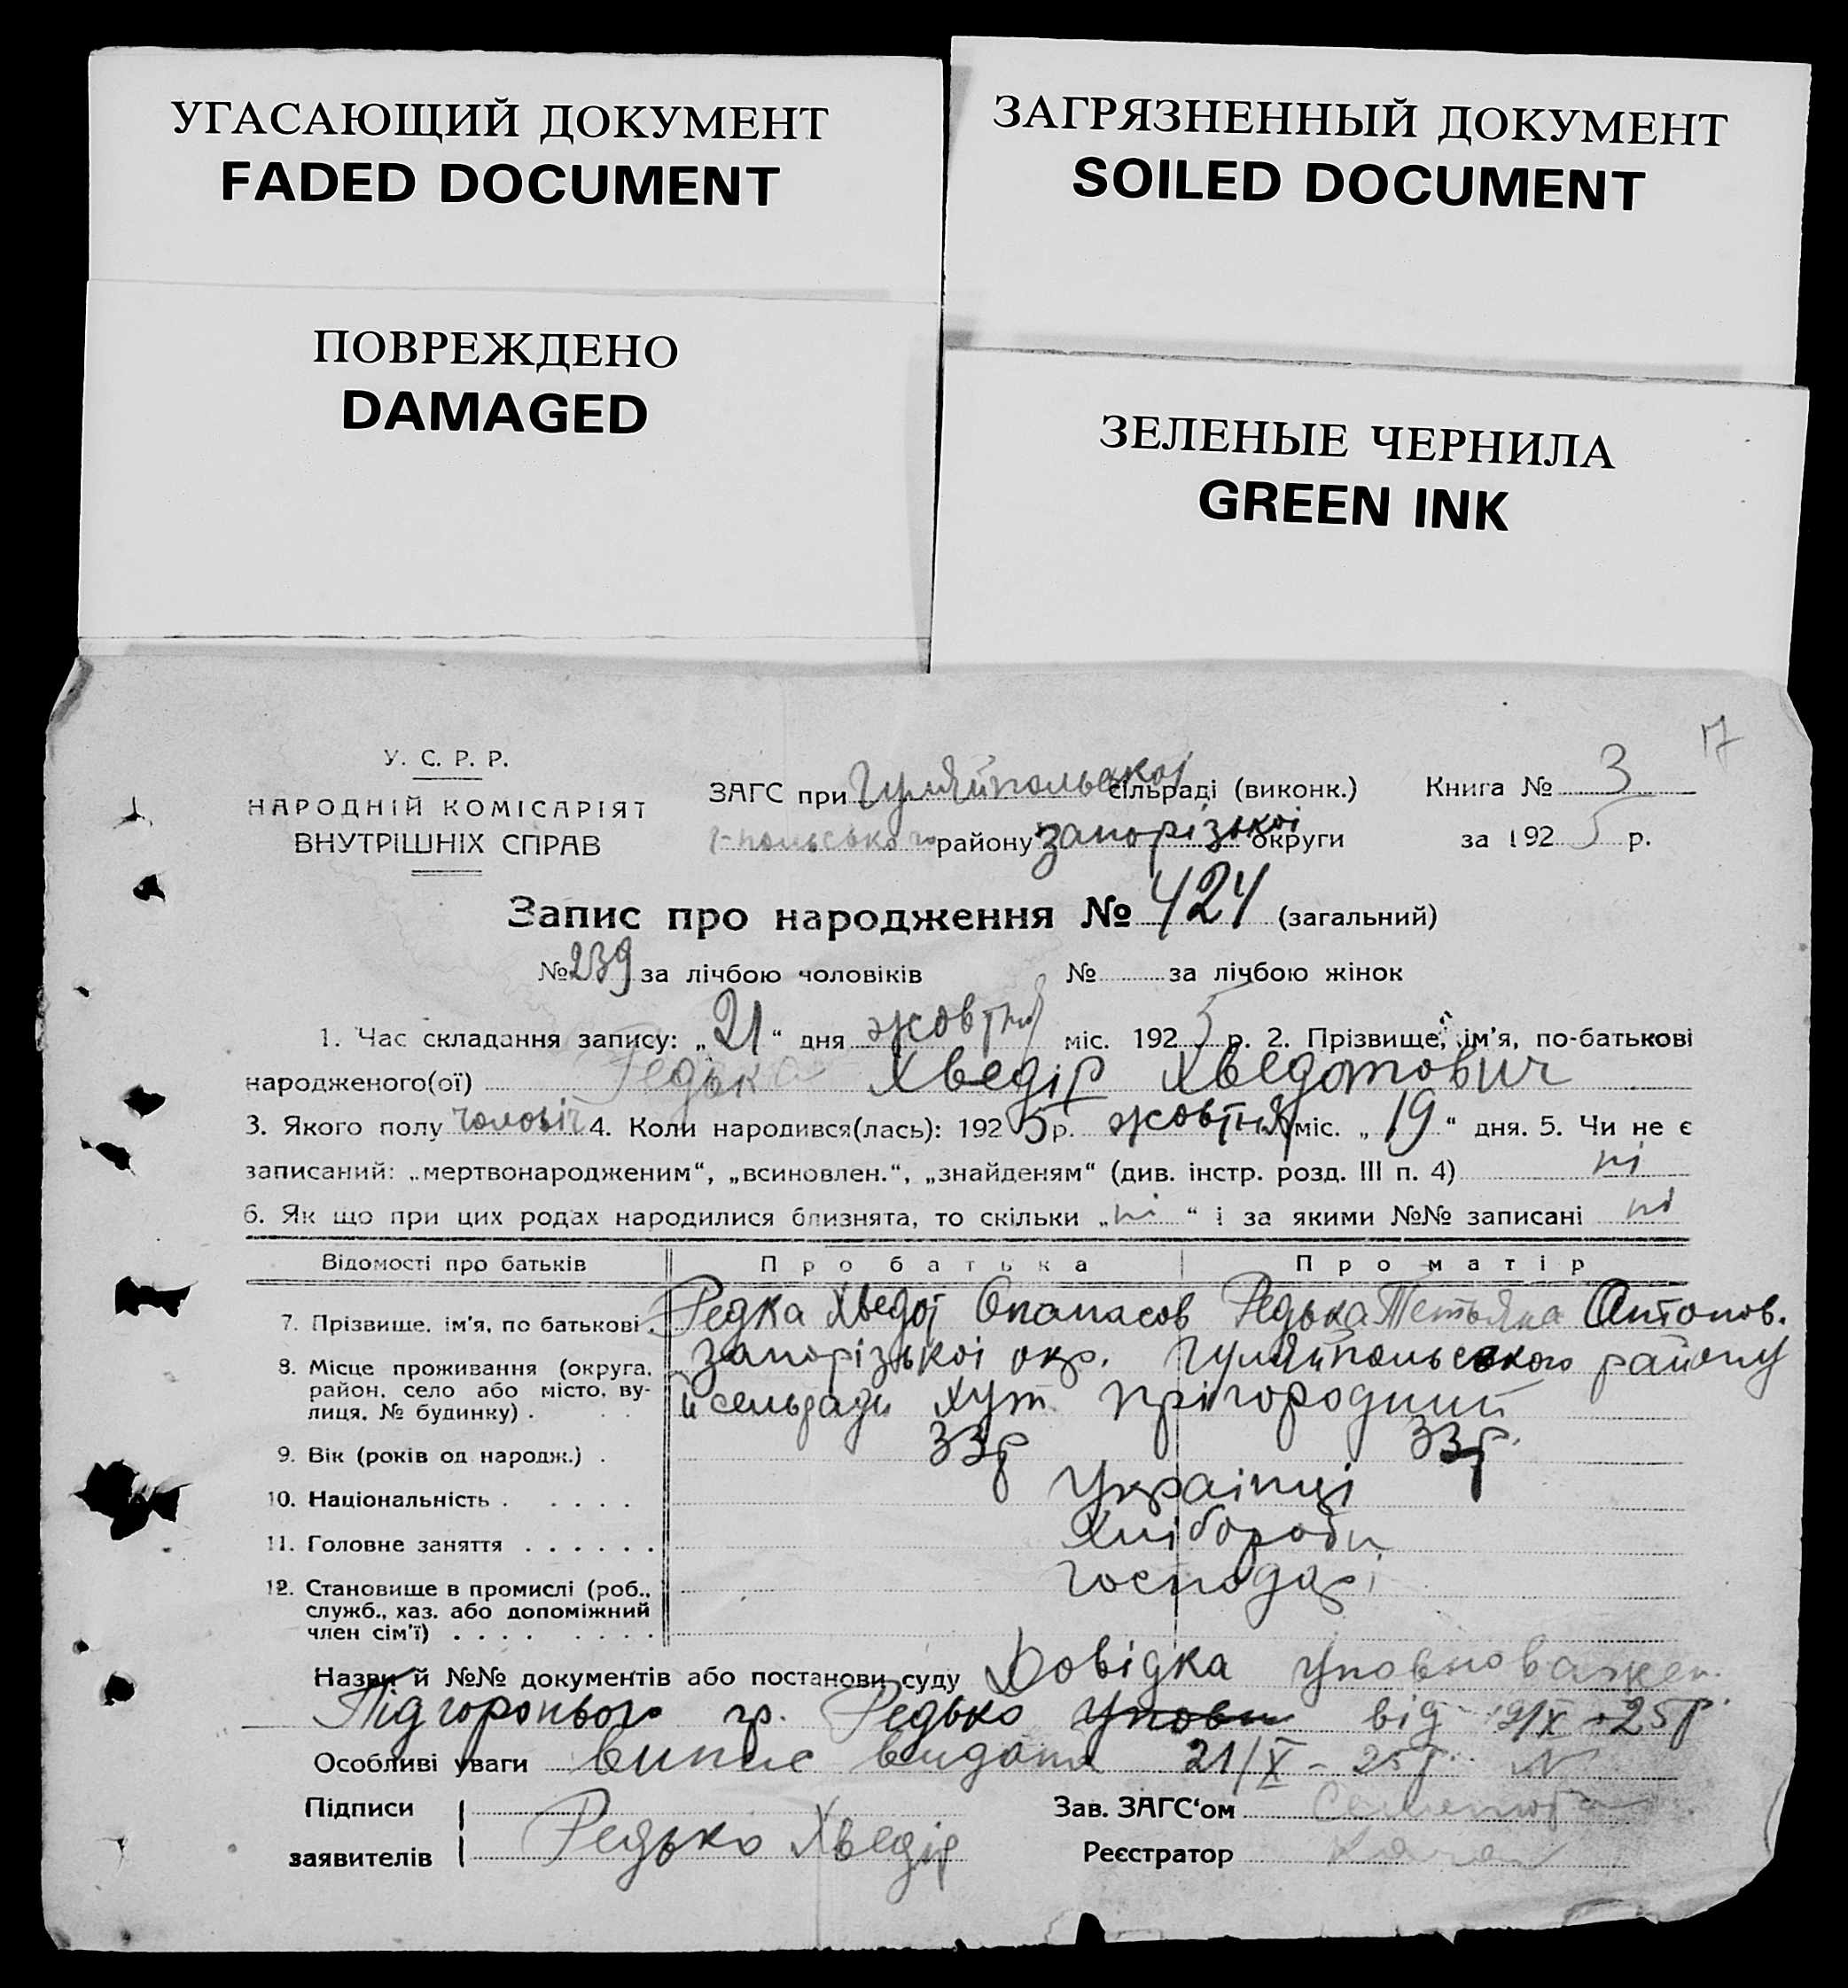 УГАСАЮЩИЙ ДОКУМЕНТ
FADED DOCUMENT
ЗАГРЯЗНЕННЫЙ ДОКУМЕНТ
SOILED DOCUMENT
ПОВРЕЖДЕНО
DAMAGED
ЗЕЛЕНЫЕ ЧЕРНИЛА
GREEN INK
17
У. С. Р. Р.
НАРОДНІЙ КОМІСАРІЯТ
ВНУТРІШНІХ СПРАВ
ЗАГС при Гуляйпольскої сільраді (виконк.) Книга № 3
Г-польського району Запорізької округи за 1925 р.
Запис про народження № 424 (загальний)
№ 239 за лічбою чоловіків № за лічбою жінок
1. Час складання запису: „21“ дня жовтня міс. 1925 р. 2. Прізвище, ім'я, по-батькові
народженого(ої) Редька Хведір Хведотович
3. Якого полу чоловіч 4. Коли народився(лась): 1925 р. жовтня міс. „19“ дня. 5. Чи не є
записаний: „мертвонародженим“, „всиновлен.“, „знайденям“ (див. інстр. розд. III п. 4) ні
6. Як що при цих родах народилися близнята, то скільки „ні“ і за якими №№ записані ні
Відомості про батьків Про батька Про матір
7. Прізвище, ім'я, по батькові . Редка Хведот Опанасов Редька Тетьяна Антонов.
8. Місце проживання (округа, район, село або місто, вулиця, № будинку) . Запорізької окр. Гуляйпольского району
й сельради хут. Прігородний
9. Вік (років од народж.) . 33р 33р.
10. Національність . . . . . Українці
11. Головне заняття . . . . . . Хлібороби
12. Становище в промислі (роб., служб., хаз. або допоміжний член сім'ї) . . . . . . . . Господарі
Назви й №№ документів або постанови суду Довідка уповноважен.
Підгоронього гр. Редько уповн від 19/X-25р.
Особливі уваги Випис видана 21/X-25р. N
Підписи
заявителів Редько Хведір
Зав. ЗАГС'ом
Реєстратор